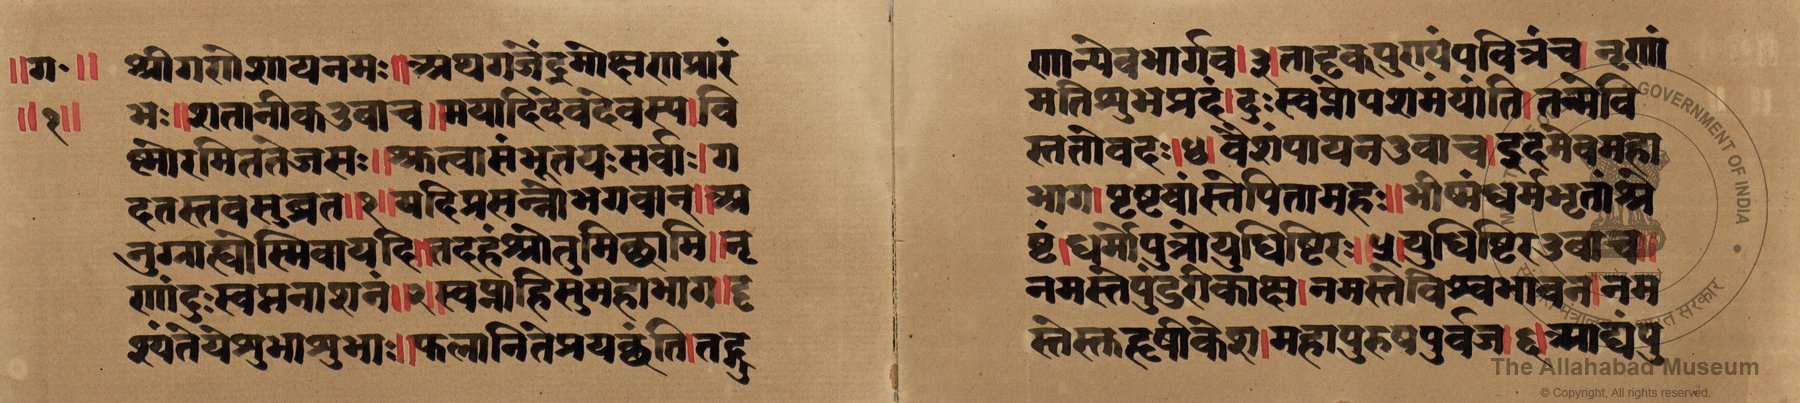 ॥ग॰॥ श्रीगणेशायनमः॥अथगजेंद्रमोक्षणप्रारं
॥१॥ भः॥शतानीकउवाच॥मयादिदेवदेवस्य।वि
ष्णोरमिततेजसः॥कृत्वासंभूतयःसर्वाः।ग
दतस्तवसुव्रत॥१॥यदिप्रसन्नोभगवान॥अ
नुग्राह्योस्मिवायदि॥तदहंश्रोतुमिछामि॥नृ
णांदुःस्वप्ननाशनं॥२॥स्वप्नाहिसुमहाभाग॥दृ
श्यंतेयेशुभाशुभाः॥फलानितेप्रयछंति।तद्गु
णान्येवभार्गव।३।तादृकपुण्यंपवित्रंच।नृणां
मतिशुभप्रदं।दुःस्वप्नोपशमंयांति।तन्मेवि
स्ततोवदः।४।वैशंपायनउवाच।इदमेवमहा
भाग।पृष्टवांस्तेपितामहः॥भीष्मंधर्मभृतांश्रे
ष्टं।धर्मोपुत्रोयुधिष्टिरः॥५।युधिष्टिरउवाच॥
नमस्तेपुंडरीकाक्ष।नमस्तेविश्वभावन।नम
स्तेस्तुहृषीकेश।महापुरुषपुर्वज।६।आद्यंपु
GOVERNMENT OF INDIA
The Allahabad Museum
© Copyright, All rights reserved.